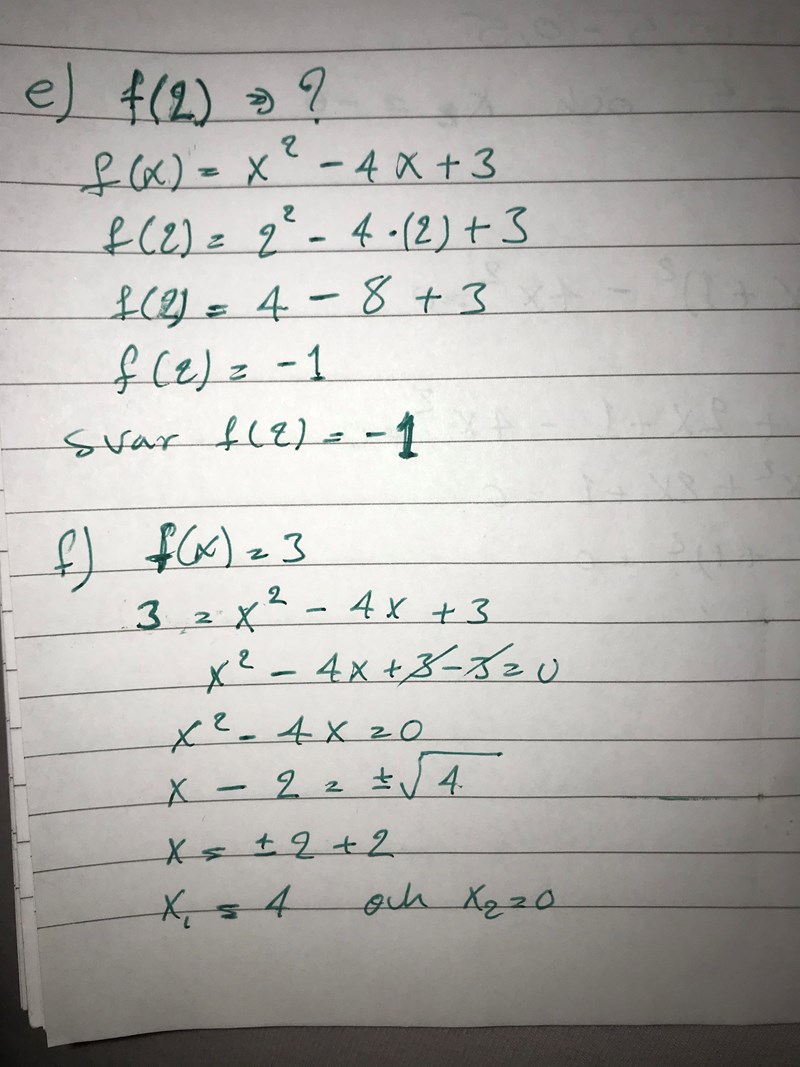 e) f(2) => ?
f(x) = x² - 4x + 3
f(2) = 2² - 4·(2) + 3
f(2) = 4 - 8 + 3
f(2) = -1
svar f(2) = -1
f) f(x) = 3
3 = x² - 4x + 3
x² - 4x + 3 - 3 = 0
x² - 4x = 0
x - 2 = ±√4
x = ±2 + 2
x₁ = 4 och x₂ = 0